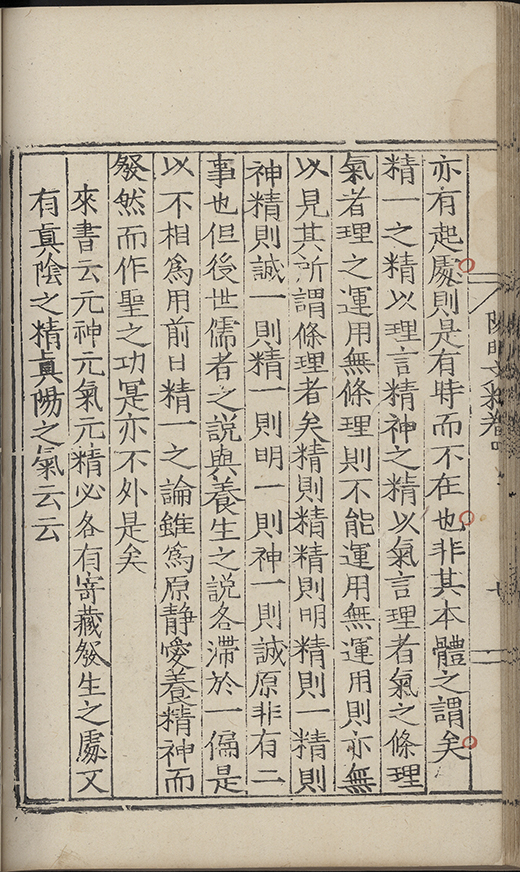 陽明文粹卷
亦有起處則是有時而不在也非其本體之謂矣
精一之精以理言精神之精以氣言理者氣之條理
氣者理之運用無條理則不能運用無運用則亦無
以見其所謂條理者矣精則精精則明精則一精則
神精則誠一則精一則明一則神一則誠原非有二
事也但後世儒者之説與養生之説各滯於一偏是
以不相爲用前日精一之論雖爲原靜愛養精神而
發然而作聖之功寔亦不外是矣
來書云元神元氣元精必各有寄藏發生之處又
有眞陰之精眞陽之氣云云